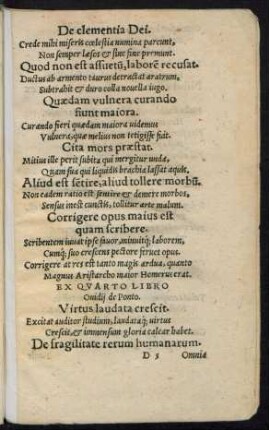 De clementia Dei.
Crede mihi miseris cœlestia numina parcunt,
Non semper læsos & sine fine premunt.
Quod non est assuetũ, laborẽ recusat.
Ductus ab armento taurus detractat aratrum,
Subtrahit & duro colla nouella iugo.
Quædam vulnera curando
fiunt maiora.
Curando fieri quædam maiora uidemus
Vulnera, quæ melius non tetigisse fuit.
Cita mors præstat.
Mitius ille perit subita qui mergitur unda,
Quam sua qui liquidis brachia lassat aquis.
Aliud est sẽtire, aliud tollere morbũ.
Non eadem ratio est sentire & demere morbos,
Sensus inest cunctis, tollitur arte malum.
Corrigere opus maius est
quam scribere.
Scribentem iuuat ipse fauor, minuitq́; laborem,
Cumq́; suo crescens pectore feruet opus.
Corrigere at res est tanto magis ardua, quanto
Magnus Aristarcho maior Homerus erat.
EX QVARTO LIBRO
Ouidij de Ponto.
Virtus laudata crescit.
Excitat auditor studium, laudataq́; uirtus
Crescit, & immensum gloria calcar habet.
De fragilitate rerum humanarum.
D 5 Omnia